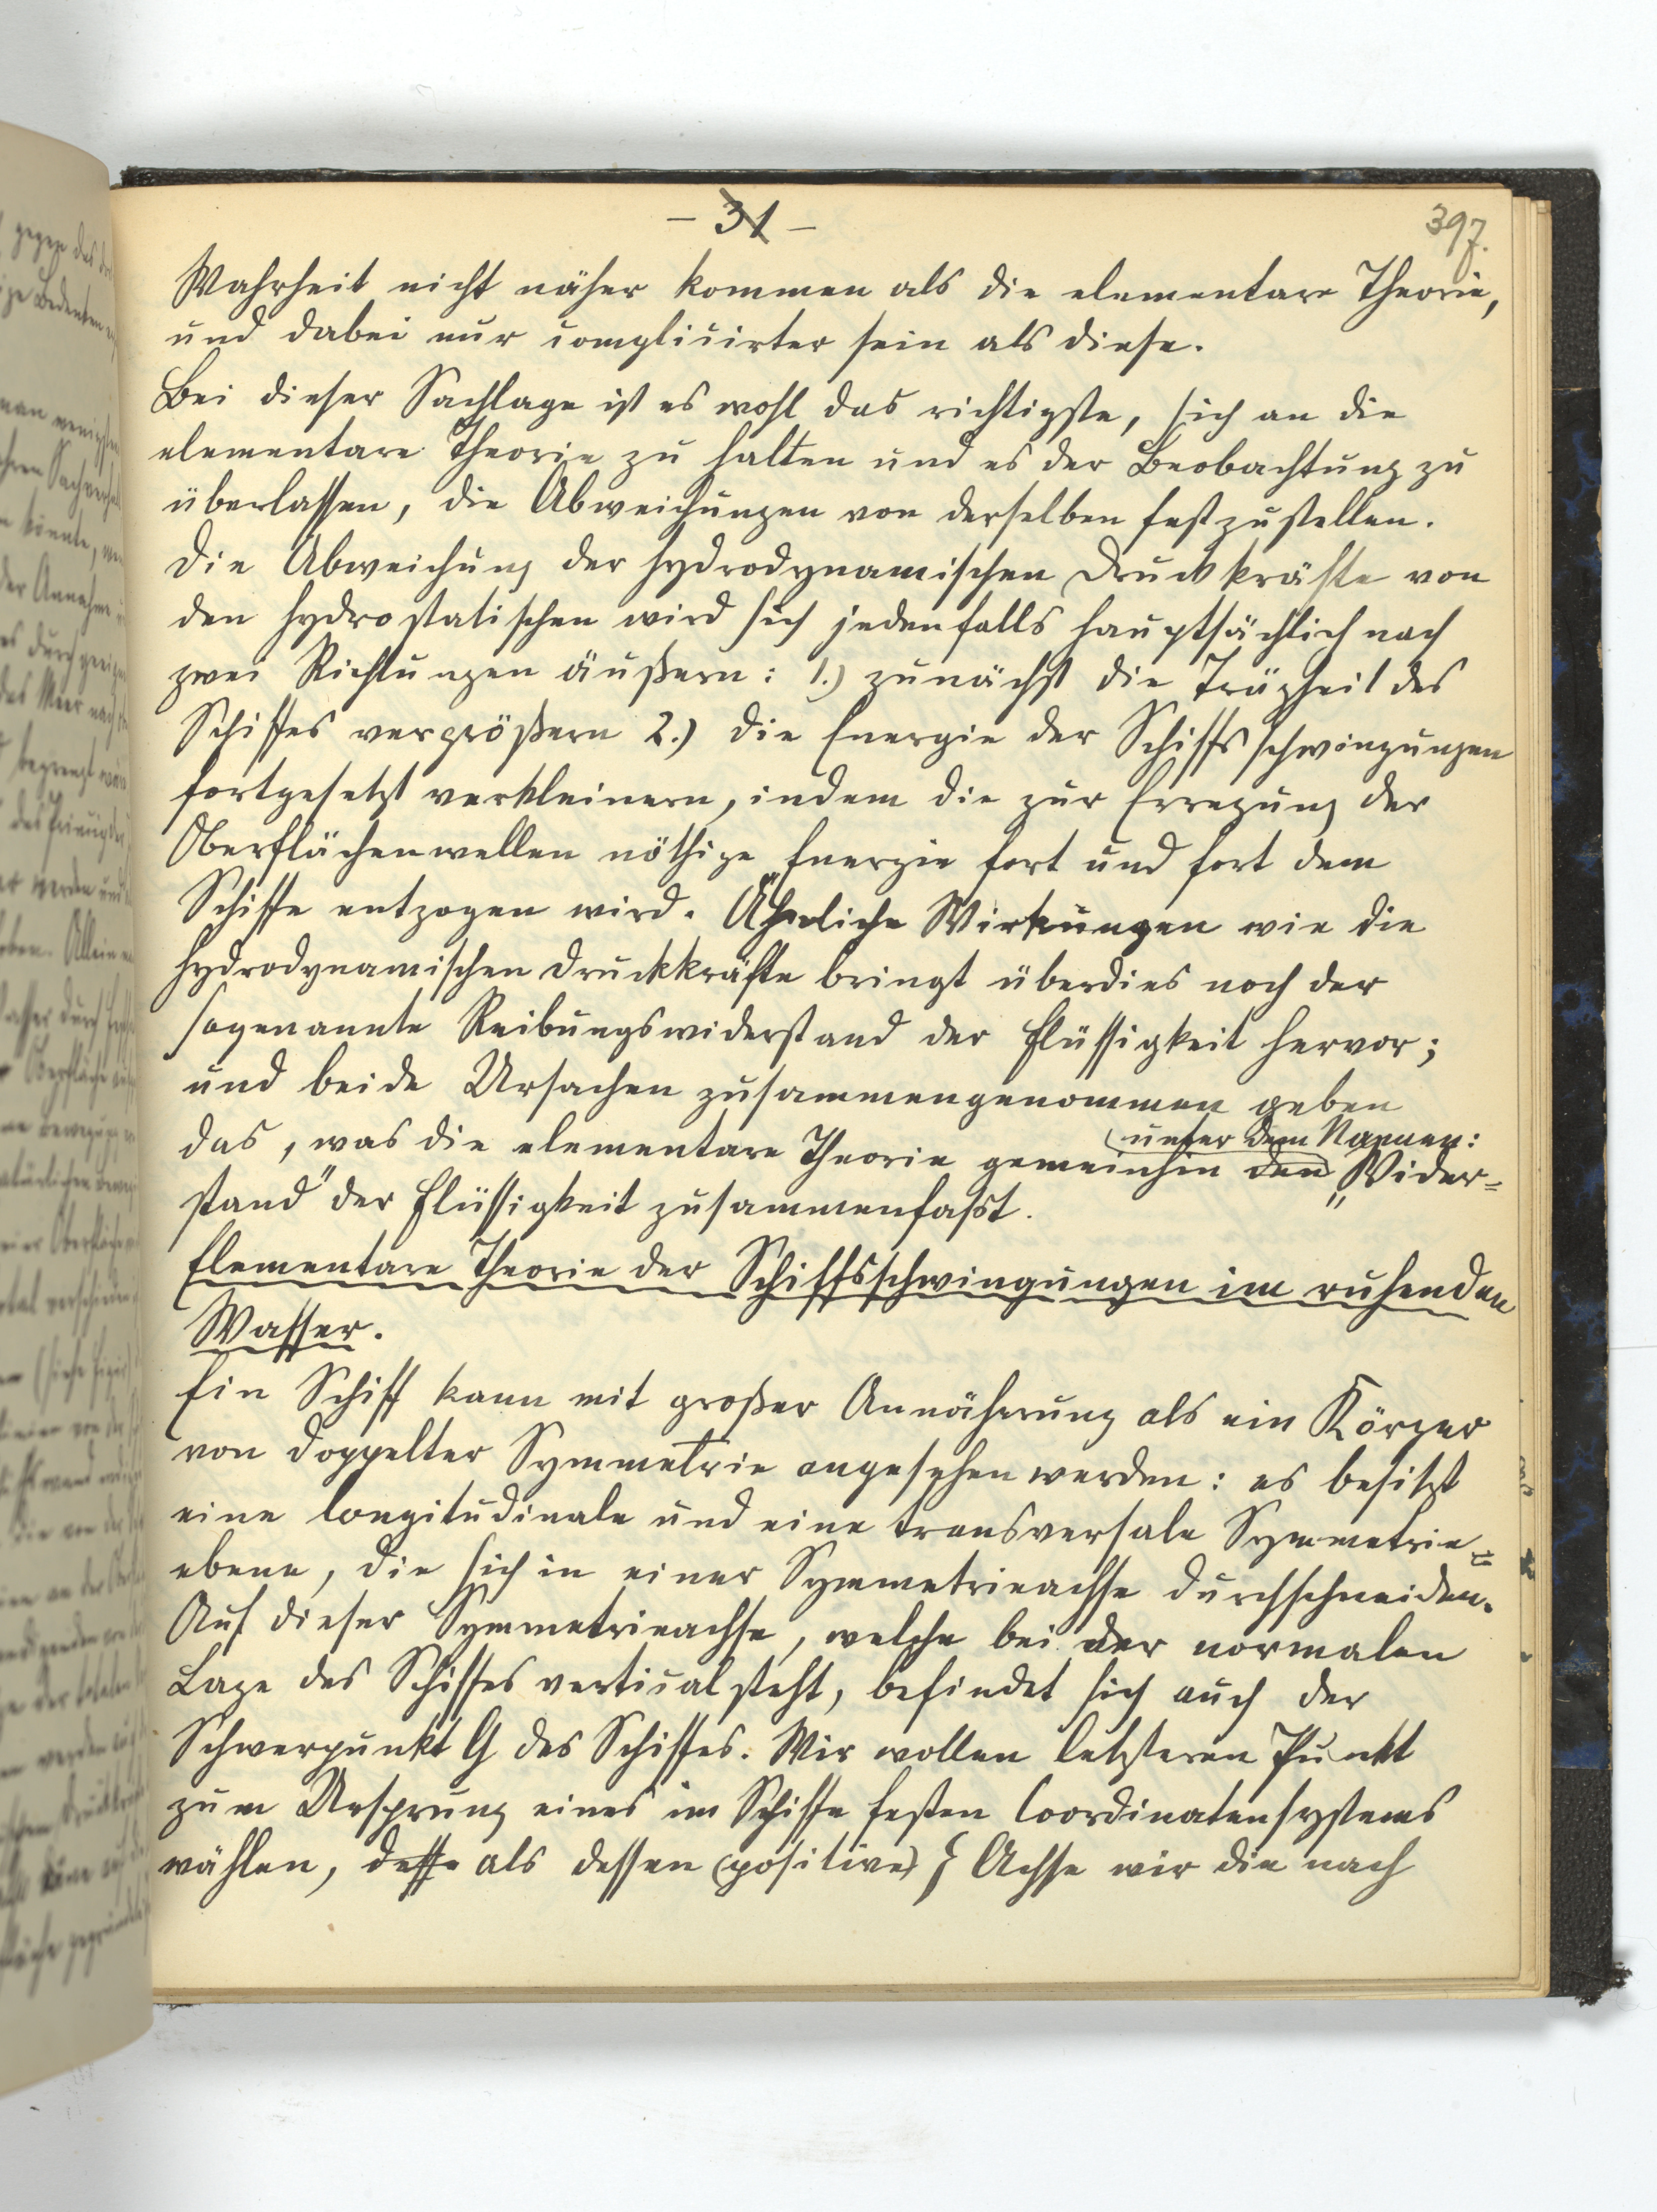 – 31 –
397.
Wahrheit nicht näher kommen als die elementare Theorie,
und dabei nur complicirter sein als diese.
Bei dieser Sachlage ist es wohl das richtigste, sich an die
elementare Theorie zu halten und es der Beobachtung zu
überlassen, die Abweichungen von derselben festzustellen.
Die Abweichung der hydrodynamischen Druckkräfte von
den hydrostatischen wird sich jedenfalls hauptsächlich nach
zwei Richtungen äußern: 1.) zunächst die Trägheit des
Schiffes vergrößern 2.) die Energie der Schiffsschwingungen
fortgesetzt verkleinern, indem die zur Erregung der
Oberflächenwellen nöthige Energie fort und fort dem
Schiffe entzogen wird. Ähnliche Wirkungen wie die
hydrodynamischen Druckkräfte bringt überdies noch der
sogenannte Reibungswiderstand der Flüssigkeit hervor;
und beide Ursachen zusammengenommen geben
(unter dem Namen:
das, was die elementare Theorie gemeinhin den „Wider=
stand" der Flüssigkeit zusammenfaßt.
Elementare Theorie der Schiffsschwingungen im ruhenden
Wasser.
Ein Schiff kann mit großer Annäherung als ein Körper
von doppelter Symmetrie angesehen werden: es besitzt
eine longitudinale und eine transversale Symmetrie=
ebene, die sich in einer Symmetrieachse durchschneiden.
Auf dieser Symmetrieachse, welche bei der normalen
Lage des Schiffes vertical steht, befindet sich auch der
Schwerpunkt G des Schiffes. Wir wollen letzteren Punkt
zum Ursprung eines im Schiffe festen Coordinatensystems
wählen, desse als dessen (positive) ζ Achse wir die nach